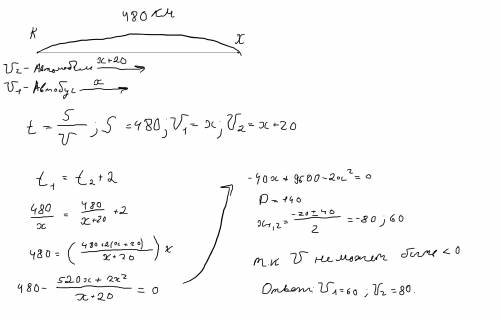 480 км
К
х
V2 - Автомобиль x+20
V1 - Автобус x
t = S/V ; S = 480 ; V1 = x ; V2 = x+20
t1 = t2 + 2
480/x = 480/(x+20) + 2
480 = ((480+2(x+20))/(x+20)) x
480 - (520x + 2x²)/(x+20) = 0
-40x + 9600 - 2x² = 0
D = 140
x1,2 = (-20 ± 40)/2 = -80 ; 60
т.к V не может быть < 0
Ответ: V1 = 60 ; V2 = 80.